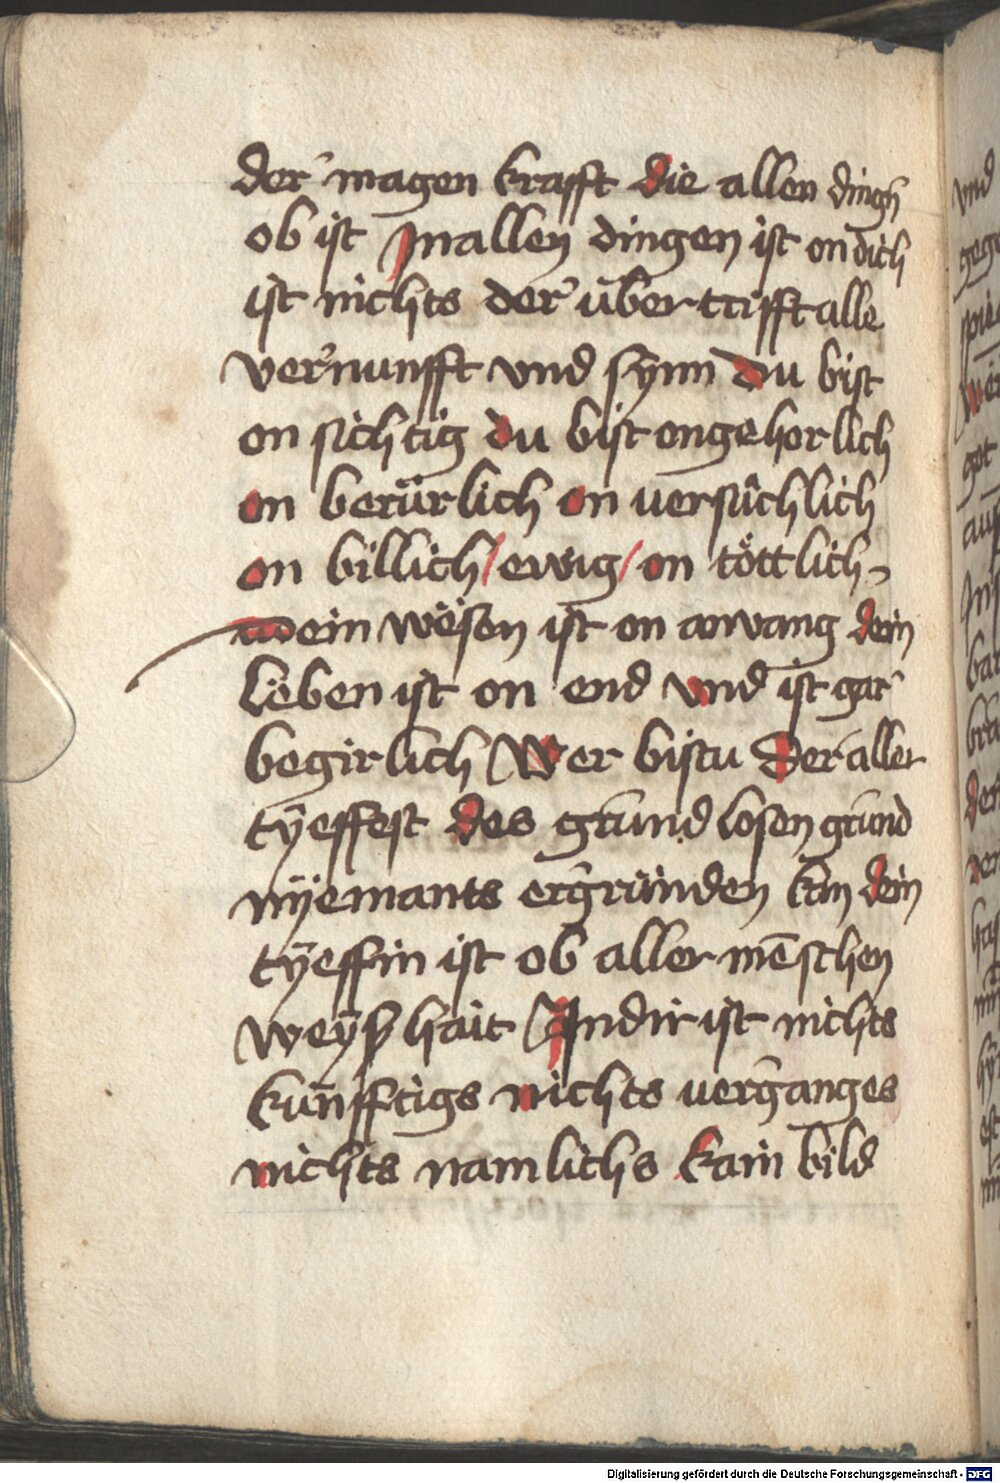 der magen krafft die allen dingn̄
ob ist Jn allen dingen ist on dich
ist nichts der über trifft alle
vernunfft vnd synn du bist
on sichtig du bist ongehorlich
on berürlich on versůchlich
on billich / ewig / on tŏttlich
dein wësen ist on anvang dein
Lëben ist on end vnd ist gar
begirlich Wer bistu Der aller
tÿeffest des grund losen grund
nÿemants ergründen kan dein
tÿeffin ist ob aller mēschen
weÿß hait Jn dir ist nichts
kunfftigs nichts verganges
nichts namlichs kain bild
vnd
got
Digitalisierung gefördert durch die Deutsche Forschungsgemeinschaft - DFG